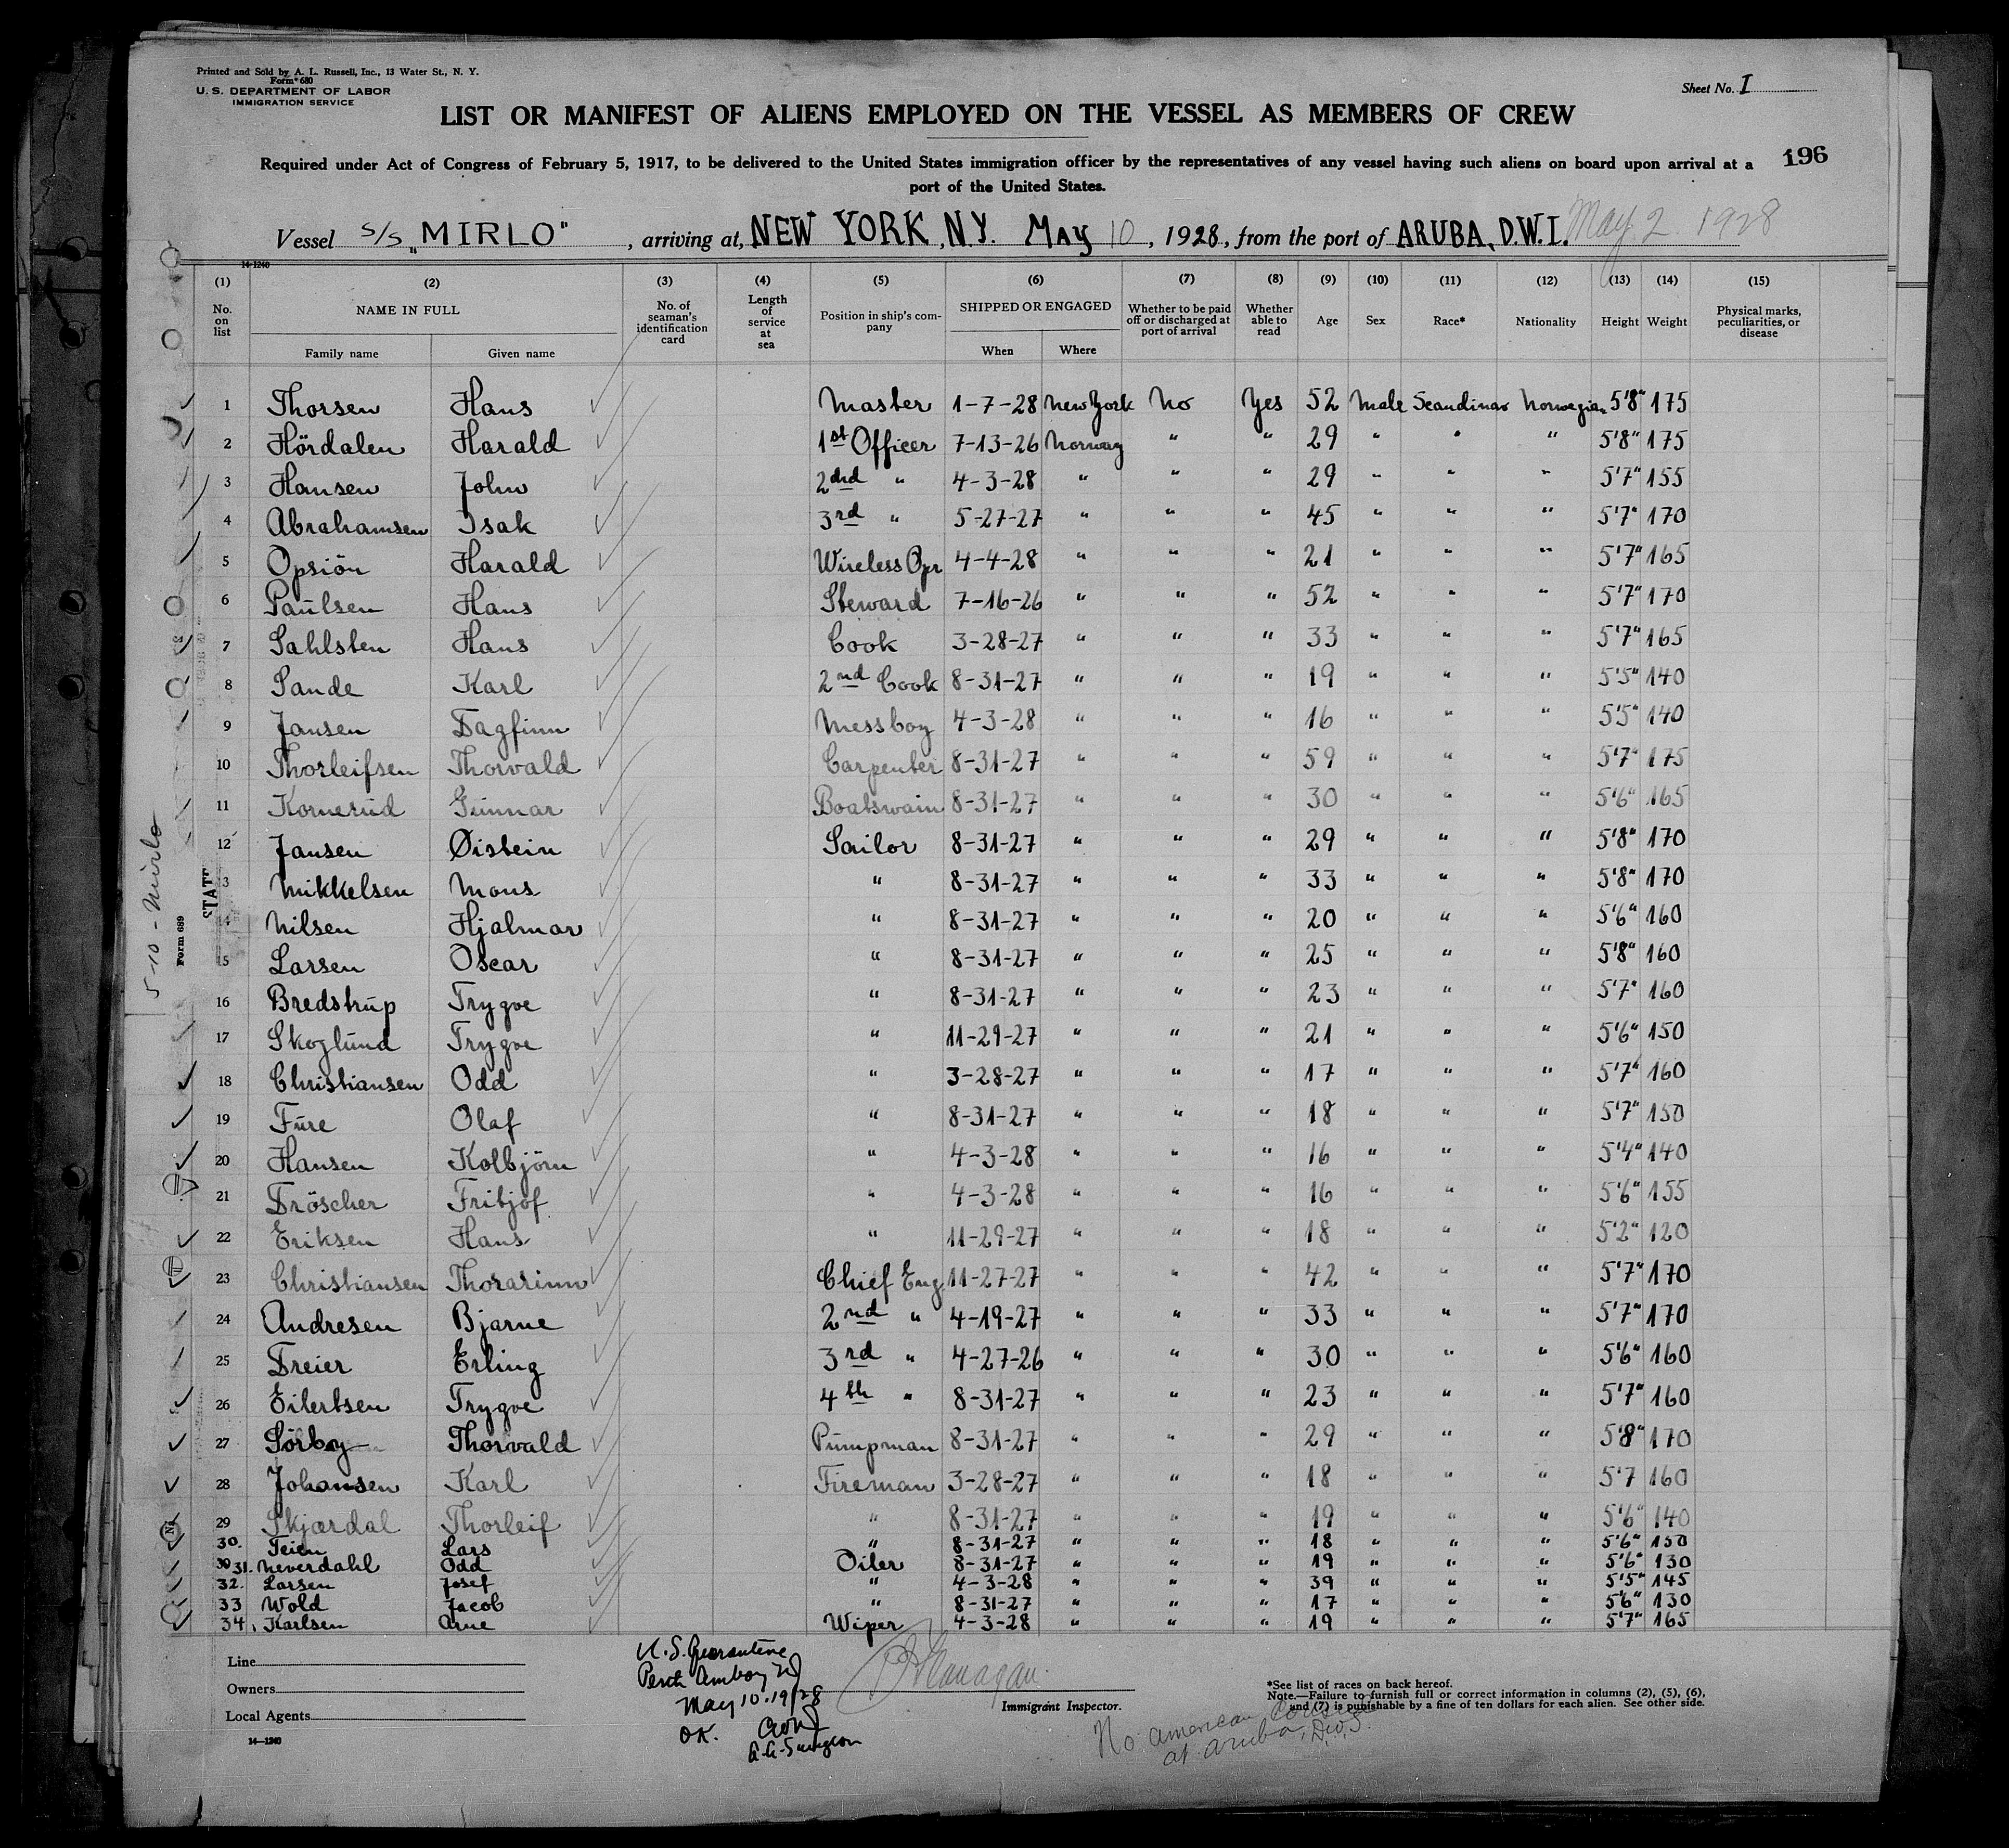 Printed and Sold by A. L. Russell, Inc., 13 Water St., N. Y.
Form 680
U. S. DEPARTMENT OF LABOR
IMMIGRATION SERVICE
Sheet No. I
LIST OR MANIFEST OF ALIENS EMPLOYED ON THE VESSEL AS MEMBERS OF CREW
196
Required under Act of Congress of February 5, 1917, to be delivered to the United States immigration officer by the representatives of any vessel having such aliens on board upon arrival at a
port of the United States.
Vessel S/S "MIRLO", arriving at, NEW YORK, N.Y. May 10, 1928, from the port of ARUBA, D.W.I. May 2 1928
14-1240
(1) (2) (3) (4) (5) (6) (7) (8) (9) (10) (11) (12) (13) (14) (15)
No. on list NAME IN FULL No. of seaman's identification card Length of service at sea Position in ship's company SHIPPED OR ENGAGED Whether to be paid off or discharged at port of arrival Whether able to read Age Sex Race* Nationality Height Weight Physical marks, peculiarities, or disease
Family name Given name When Where
1 Thorsen Hans Master 1-7-28 New York No Yes 52 Male Scandinav Norwegian 5'8" 175
2 Hördalen Harald 1st Officer 7-13-26 Norway " " 29 " " " 5'8" 175
3 Hansen John 2dnd " 4-3-28 " " " 29 " " " 5'7" 155
4 Abrahamsen Isak 3rd " 5-27-27 " " " 45 " " " 5'7" 170
5 Opsiön Harald Wireless Opr 4-4-28 " " " 21 " " " 5'7" 165
6 Paulsen Hans Steward 7-16-26 " " " 52 " " " 5'7" 170
7 Sahlsten Hans Cook 3-28-27 " " " 33 " " " 5'7" 165
8 Sande Karl 2nd Cook 8-31-27 " " " 19 " " " 5'5" 140
9 Jansen Dagfinn Messboy 4-3-28 " " " 16 " " " 5'5" 140
10 Thorleifsen Thorvald Carpenter 8-31-27 " " " 59 " " " 5'7" 175
11 Kornerud Gunnar Boatswain 8-31-27 " " " 30 " " " 5'6" 165
12 Jansen Øistein Sailor 8-31-27 " " " 29 " " " 5'8" 170
3 Mikkelsen Mons " 8-31-27 " " " 33 " " " 5'8" 170
14 Nilsen Hjalmar " 8-31-27 " " " 20 " " " 5'6" 160
5 Larsen Oscar " 8-31-27 " " " 25 " " " 5'8" 160
16 Bredstrup Trygve " 8-31-27 " " " 23 " " " 5'7" 160
17 Skoglund Trygve " 11-29-27 " " " 21 " " " 5'6" 150
18 Christiansen Odd " 3-28-27 " " " 17 " " " 5'7" 160
19 Fure Olaf " 8-31-27 " " " 18 " " " 5'7" 150
20 Hansen Kolbjörn " 4-3-28 " " " 16 " " " 5'4" 140
21 Dröscher Fritjof " 4-3-28 " " " 16 " " " 5'6" 155
22 Eriksen Hans " 11-29-27 " " " 18 " " " 5'2" 120
23 Christiansen Thorarinn Chief Eng. 11-27-27 " " " 42 " " " 5'7" 170
24 Andresen Bjarne 2nd " 4-19-27 " " " 33 " " " 5'7" 170
25 Dreier Erling 3rd " 4-27-26 " " " 30 " " " 5'6" 160
26 Eilertsen Trygve 4th " 8-31-27 " " " 23 " " " 5'7" 160
27 Sörby Thorvald Pumpman 8-31-27 " " " 29 " " " 5'8" 170
28 Johansen Karl Fireman 3-28-27 " " " 18 " " " 5'7 160
29 Skjærdal Thorleif " 8-31-27 " " " 19 " " " 5'6" 140
30. Teien Lars " 8-31-27 " " " 18 " " " 5'6" 150
30 31. Neverdahl Odd Oiler 8-31-27 " " " 19 " " " 5'6" 130
32. Larsen Josef " 4-3-28 " " " 39 " " " 5'5" 145
33 Wold Jacob " 8-31-27 " " " 17 " " " 5'6" 130
34. Karlsen Arne Wiper 4-3-28 " " " 19 " " " 5'7" 165
5-10-Mirlo
Form 689
STAT
Line
Owners
Local Agents
14—1240
U. S. Quarantine
Perth Amboy NJ
May 10. 1928
OK.
A.A. Surgeon
Flanagan
Immigrant Inspector.
*See list of races on back hereof.
Note.—Failure to furnish full or correct information in columns (2), (5), (6),
and (7) is punishable by a fine of ten dollars for each alien. See other side.
No American Consul
at Aruba, D.W.I.